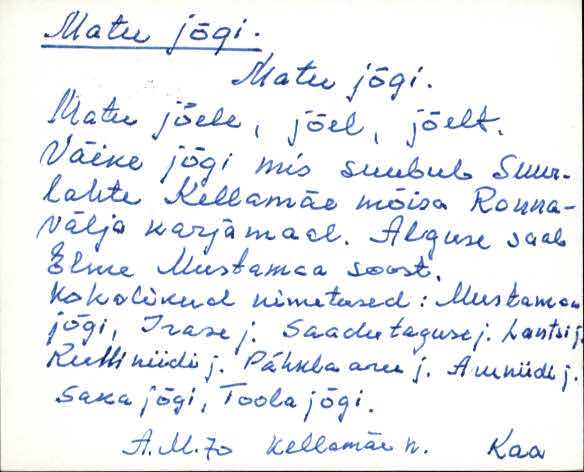 Matu jõgi.
Matu jõgi.
Matu jõele, jõel, jõelt.
Väike jõgi mis suubub Suur-
lahte Kellamäe mõisa Ronna-
välja karjamaal. Alguse saab
Elme Mustamaa soost.
Kohalikud nimetused: Mustamaa
jõgi, Irase j. Saadutaguse j. Lantsi j.
niidi j. Pähkla aru j. j.
Saka jõgi, Toola jõgi.
A.M. 70 Kellamäe k. Kaa